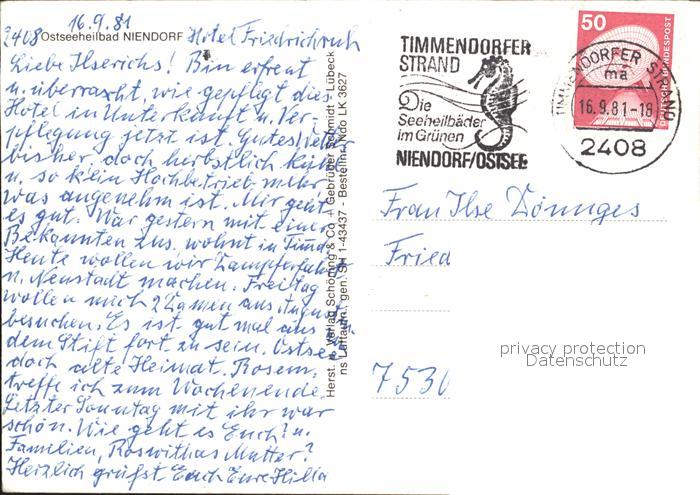 16.9.81
2408 Ostseeheilbad NIENDORF Hotel Friedrichsruh
Liebe Ilserichs! Bin erfreut
u. überrascht, wie gepflegt dies
Hotel in Unterkunft u. Ver-
pflegung jetzt ist. Gutes Wetter
bisher, doch herbstlich kühl
u. so kein Hochbetrieb mehr
was angenehm ist. Mir geht
es gut. War gestern mit einer
Bekannten zus. wohnt in Timd
Heute wollen wir Dampferfahrt
n. Neustadt machen. Freitag
wollen mich 2 Damen aus
besuchen. Es ist gut mal aus
dem Stift fort zu sein. Ostsee
doch alte Heimat. Rosem.
treffe ich zum Wochenende.
Letzter Sonntag mit ihr war
schön. Wie geht es Euch? u.
Familien, Roswithas Mutter?
Herzlich grüßt Euch Eure Hilla
Herst. u. Verlag Schöning & Co + Gebrüder Schmidt - Lübeck
ns Luftaufn. gen. SH 1-43437 - Bestellnr. Nido LK 3627
TIMMENDORFER
STRAND
Die
Seeheilbäder
im Grünen
NIENDORF/OSTSEE
50
DEUTSCHE BUNDESPOST
TIMMENDORFER STRAND
ma
16.9.81-18
2408
Frau Ilse Dönnges
Fried
7530
privacy protection
Datenschutz